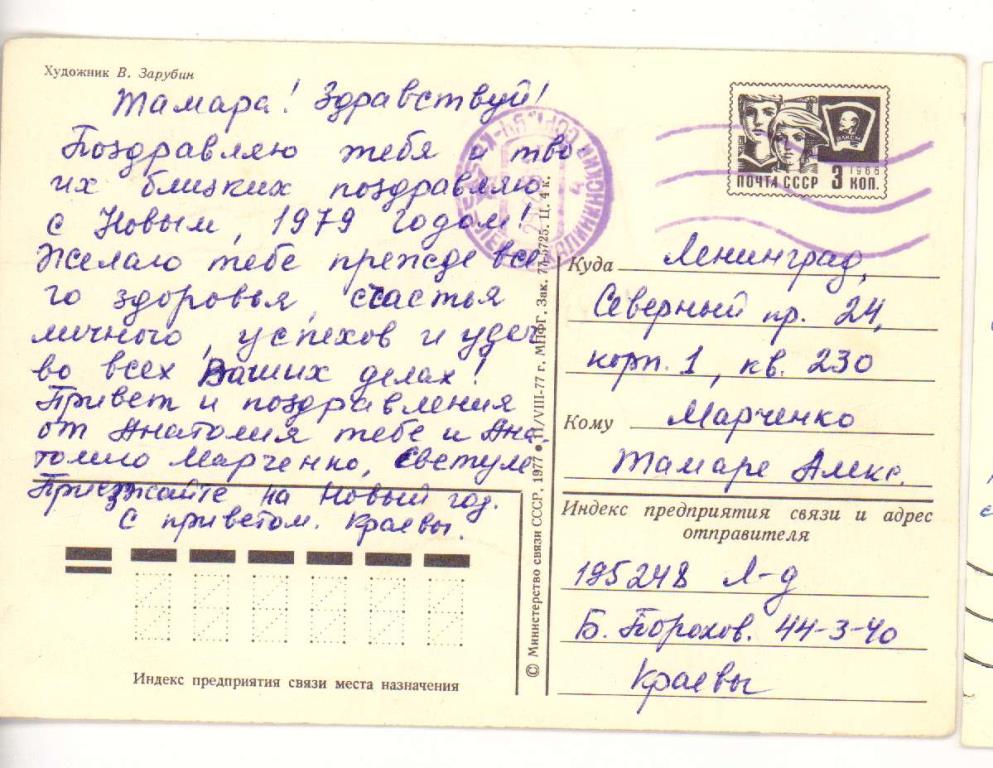 Художник В. Зарубин
Тамара! Здравствуй!
Поздравляю тебя и тво-
их близких поздравляю
с Новым, 1979 годом!
Желаю тебе, прежде все-
го здоровья, счастья
личного, успехов и удач
во всех Ваших делах!
Привет и поздравления
от Анатолия тебе и Ана-
толию Марченко, Светуле
Приезжайте на Новый год.
С приветом. Краевы.
Индекс предприятия связи места назначения
© Министерство связи СССР, 1977 • 11/VIII-77 г. МПФГ. Зак. 77-5725. Ц. 4 к.
ВЛКСМ
1966
ПОЧТА СССР 3 КОП.
Куда Ленинград,
Северный пр. 24,
корп. 1, кв. 230
Кому Марченко
Тамаре Алекс.
Индекс предприятия связи и адрес
отправителя
195248 Л-д
Б. Порохов. 44-3-40
Краевы